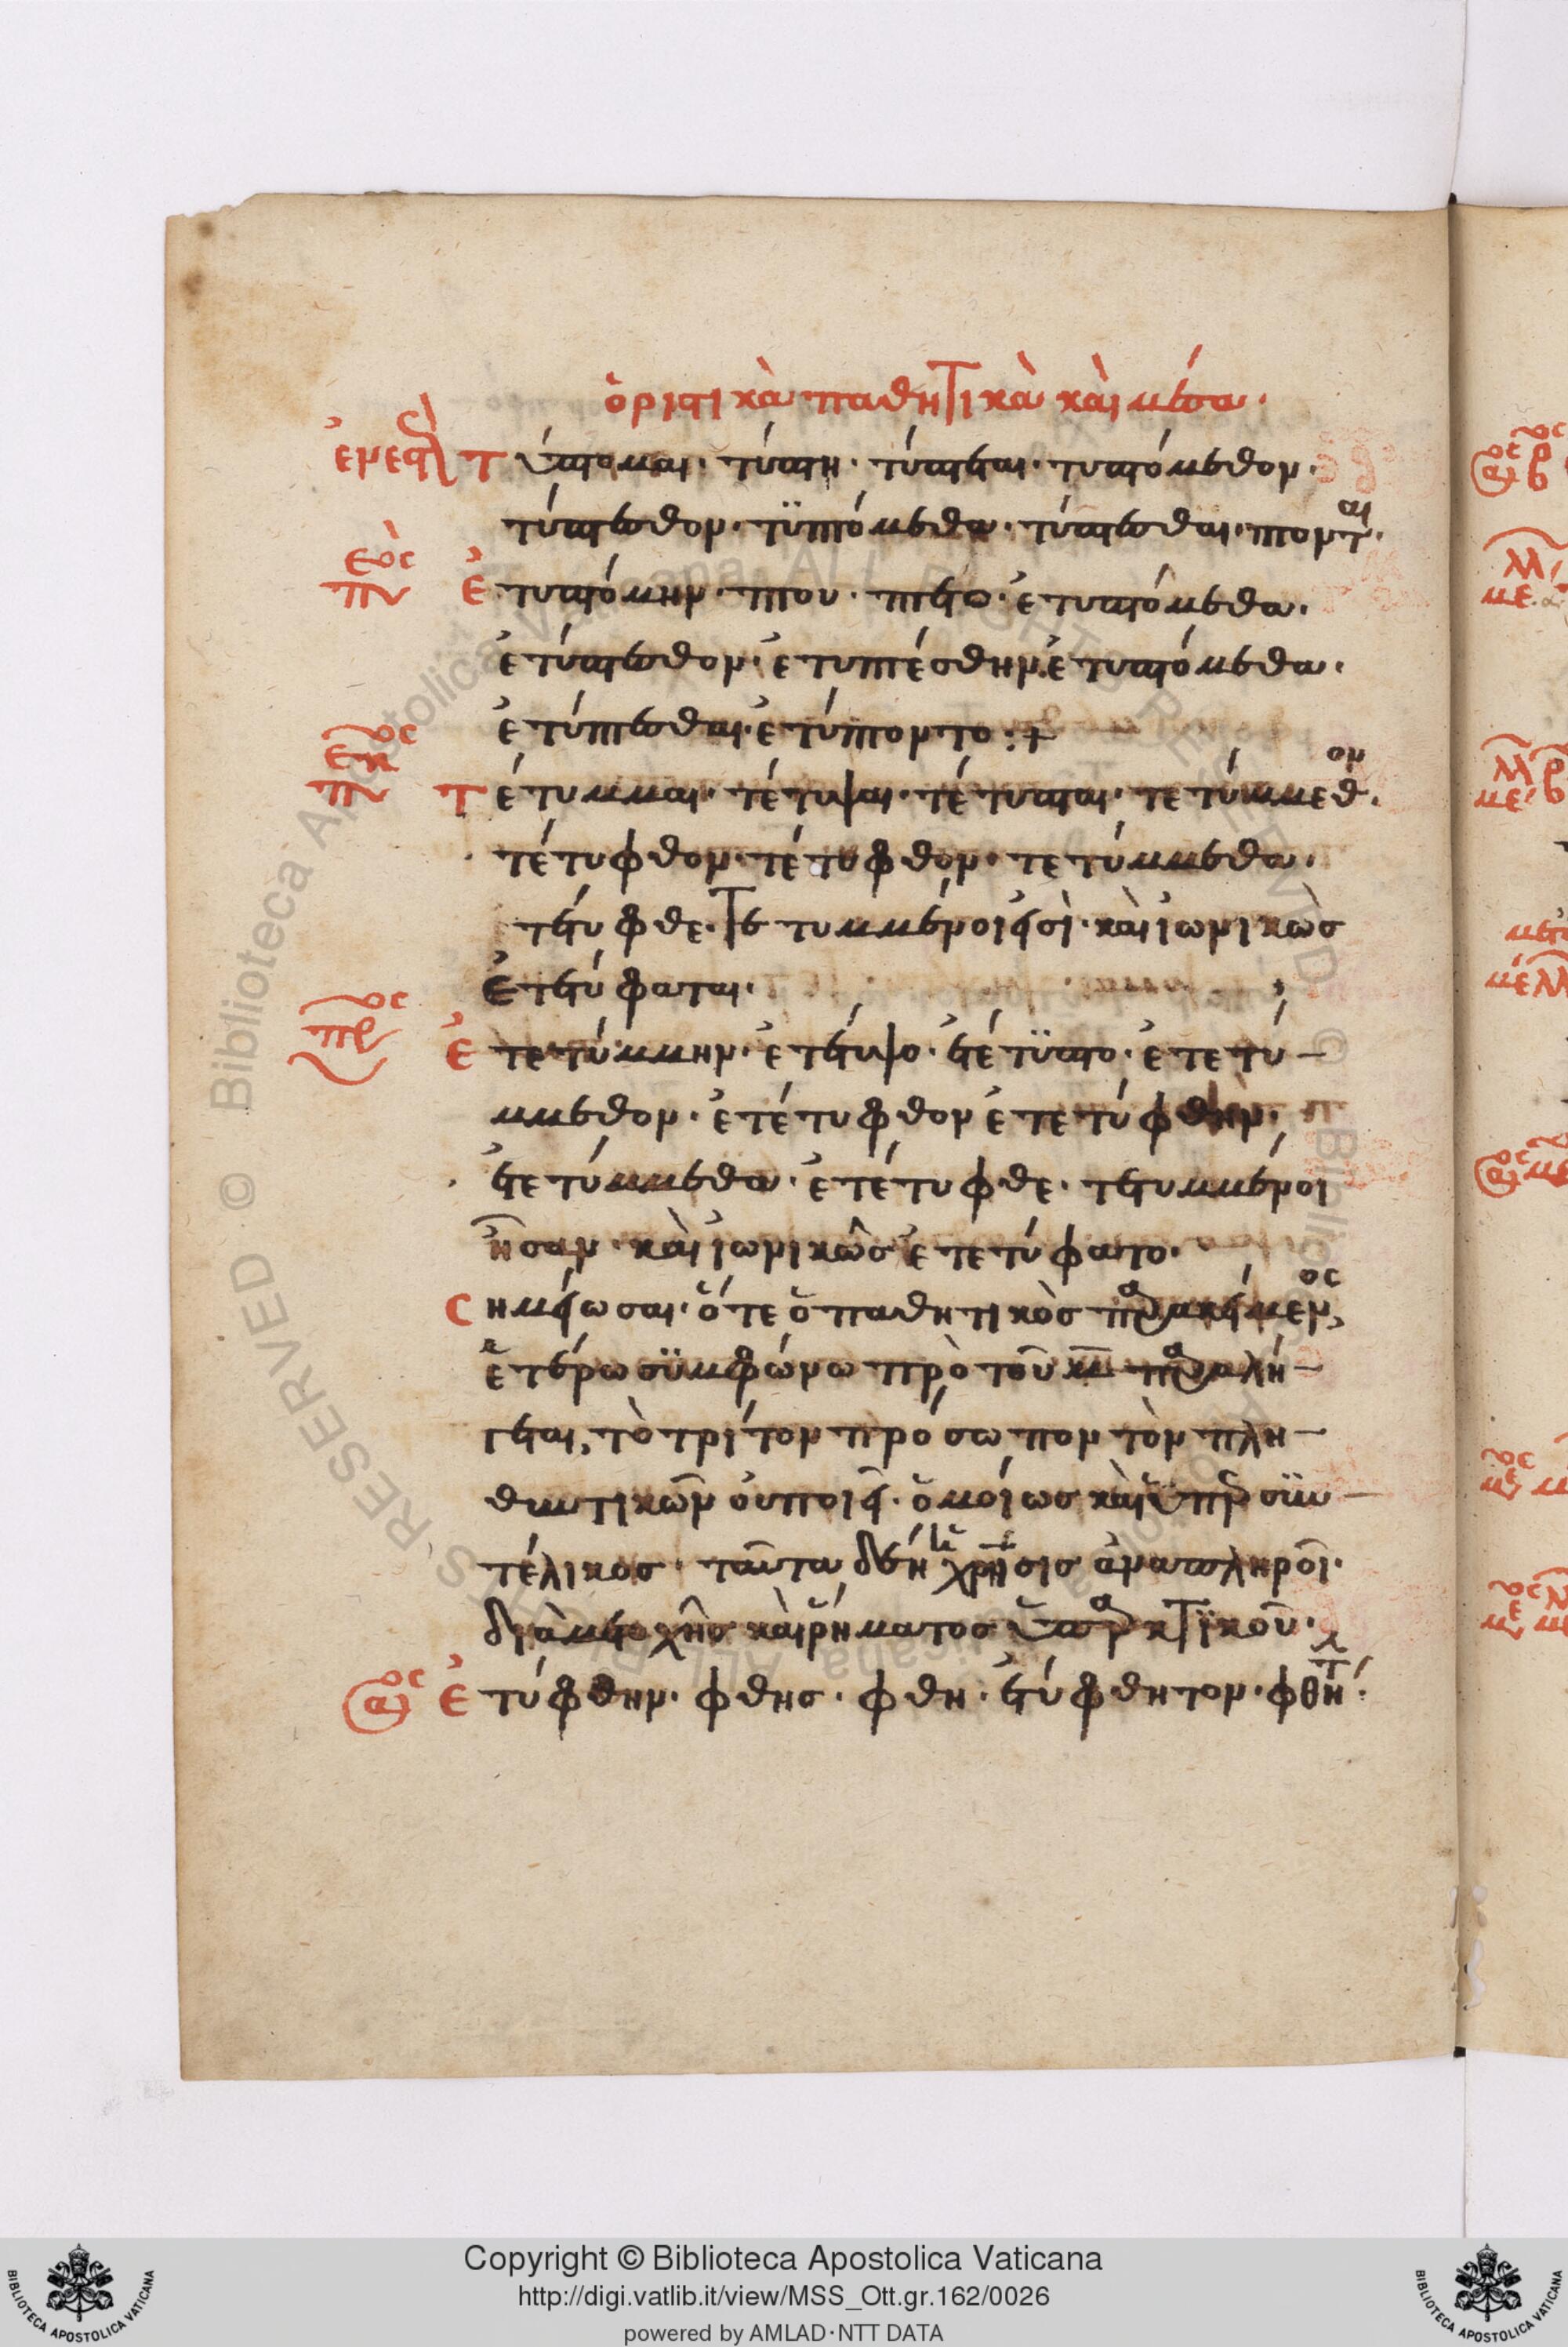 ὁριστικὰ παθητικὰ καὶ μέσα.
ἐνεστ Τύπτομαι· τύπτη· τύπτεται· τυπτόμεθον·
τύπτεσθον· τϋπτόμεθα· τύπτεσθαι· πτονται·
Ἐτυπτόμην· πτου· πτετο· ἐτυπτόμεθα·
ἐτύπτεσθον· ἐτυπτέσθην· ἐτυπτόμεθα·
ἐτύπτεσθαι· ἐτύπτοντο:+
Τέτυμμαι· τέτυψαι· τέτυπται· τετύμμεθον·
τέτυφθον· τέτυφθον· τετύμμεθα·
τέτυφθε· τετυμμένοι εἰσὶ· καὶ ἰωνικὼς
ἐτετύφαται·
Ἐτετύμμην· ἐτέτυψο· ἐτέτϋπτο· ἐτετύ-
μμεθον· ἐτέτυφθον ἐτετύφθην·
ἐτετύμμεθα· ἐτέτυφθε· τετυμμένοι
ἦσαν· καὶ ἰωνικῶς ἐτετύφατο·
Σημείωσαι· ὅτε ὁ παθητικὸς παρακείμενος
ἑτέρω σϋμφώνω πρὸ τοῦ μ παραλή-
γεται, τὸ τρίτον πρόσωπον τὸν πλη-
θυντικῶν οὐ ποιεῖ· ὁμοίως καὶ ὑπερσϋν-
τέλικος· ταῦτα δὲ ἡ χρῆσις ἀναπληροῖ·
διὰ μετοχῆς καὶ ῥήματος ὑπαρκτϊκοῦ·
Ἐτύφθην· φθης· φθη· ἐτύφθητον· φθή τ
Copyright © Biblioteca Apostolica Vaticana
http://digi.vatlib.it/view/MSS_Ott.gr.162/0026
powered by AMLAD·NTT DATA